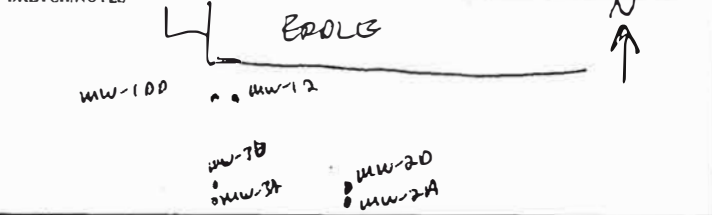 ERDLE
N
MW-1DD MW-12
MW-3D
MW-3A
MW-2D
MW-2A